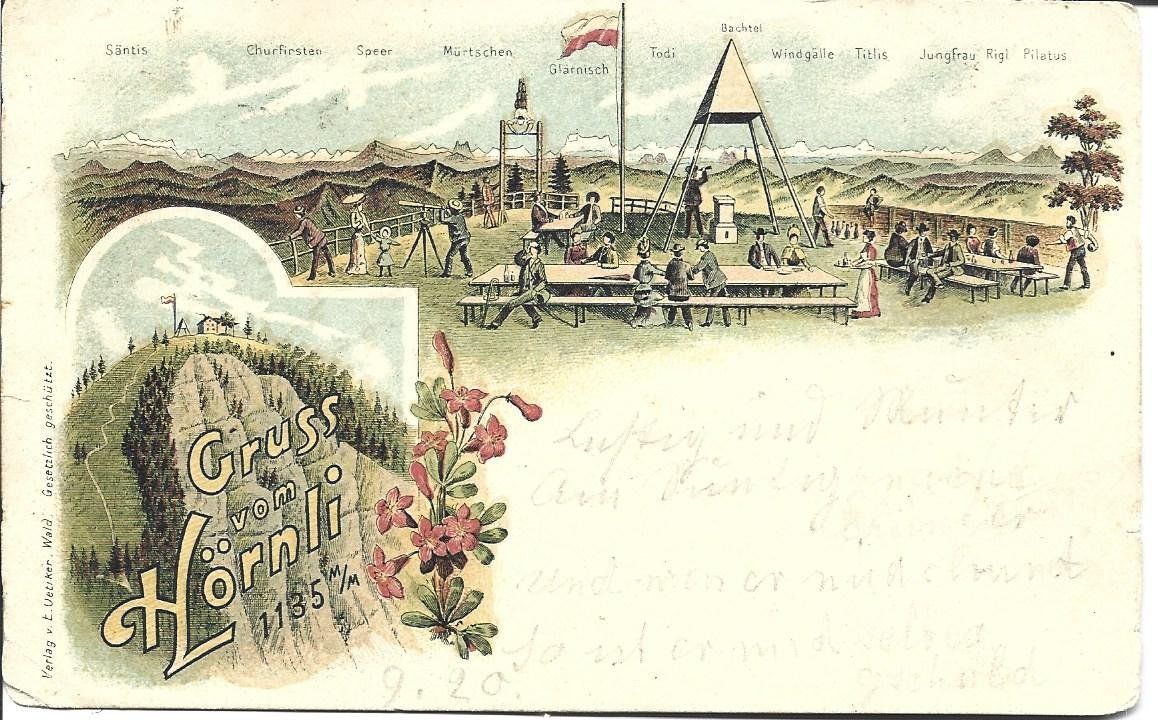 Säntis Churfirsten Speer Mürtschen Glärnisch Tödi Bachtel Windgälle Titlis Jungfrau Rigi Pilatus
Gruss
vom
Hörnli
1135 M/M
Verlag v. E. Uetiker, Wald. Gesetzlich geschützt.
Luftig und Munter
Am
er
und wen er nid chunnt
so ist er nid
9. 20.